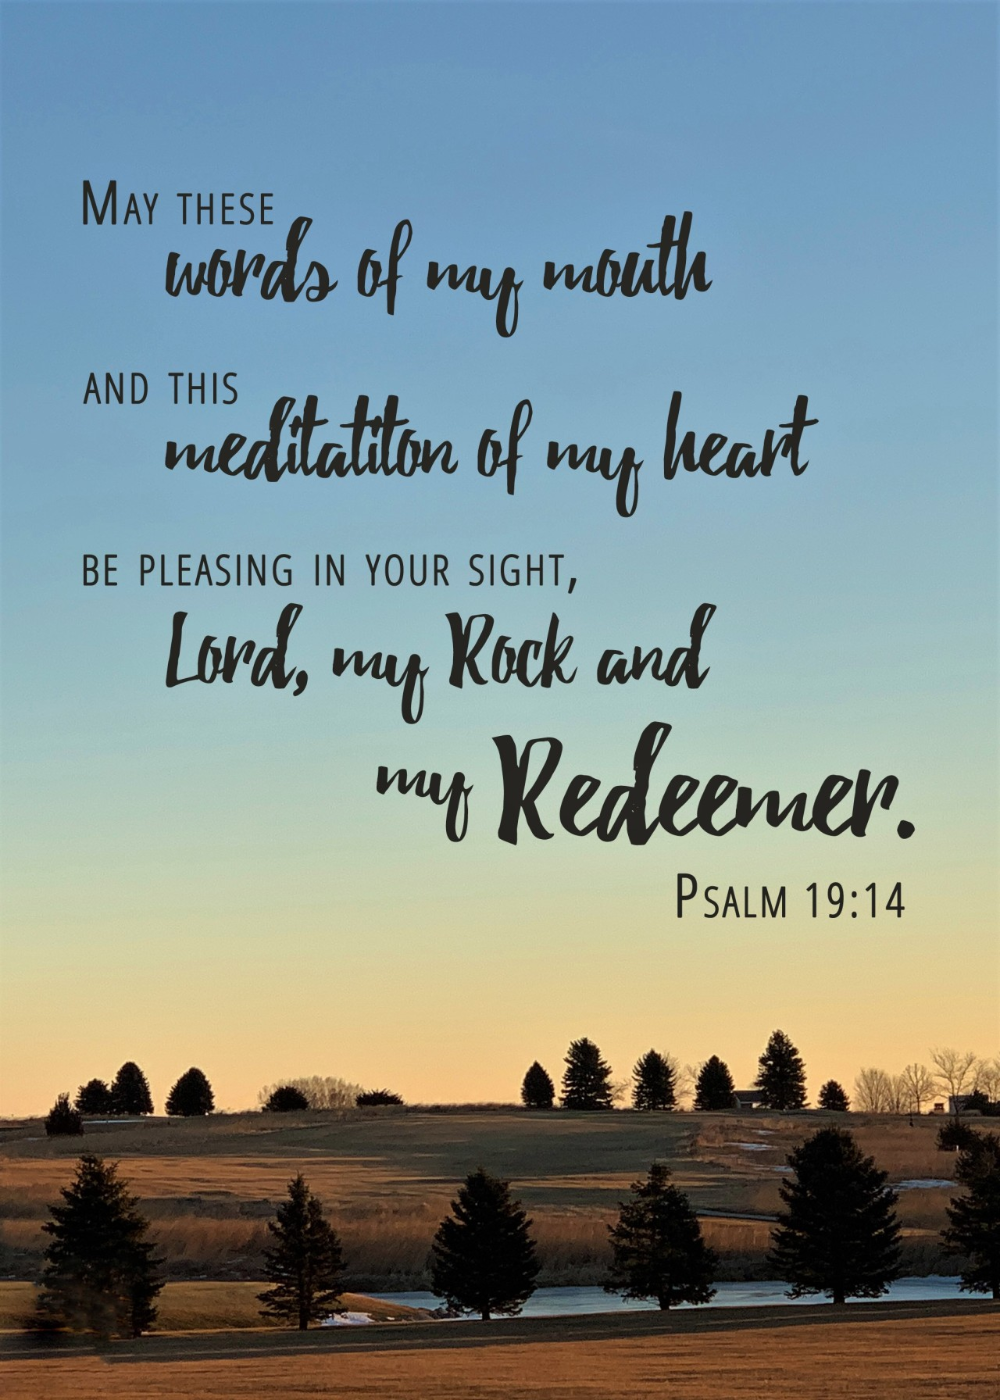 May these
words of my mouth
and this
meditatiton of my heart
be pleasing in your sight,
Lord, my Rock and
my Redeemer.
Psalm 19:14